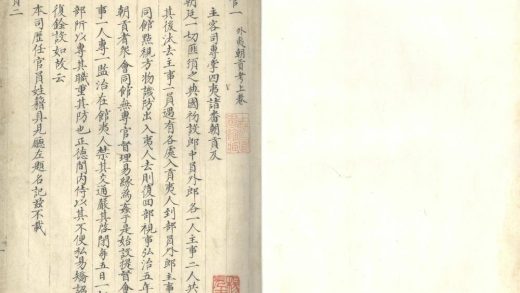 官一
外夷朝貢考上卷
主客司專掌四夷諸番朝貢及
朝廷一切匪頒之典國初設郎中員外郎各一人主事二人共
其後汰去主事一員遇有各處入貢夷人到部員外郎主事
同館點視方物譏防出入夷人去則復回部視事弘治五年
朝貢者衆會同館無專官督理易緣為姦乎是始設提督會
事一人專一監治在館夷人禁其交通嚴其啓閉每五日一
部所以專其職重其防也正德間內侍以其不便私易矯
復銓設如故云
本司歷任官員姓籍具見廳左題名記茲不載
貢二